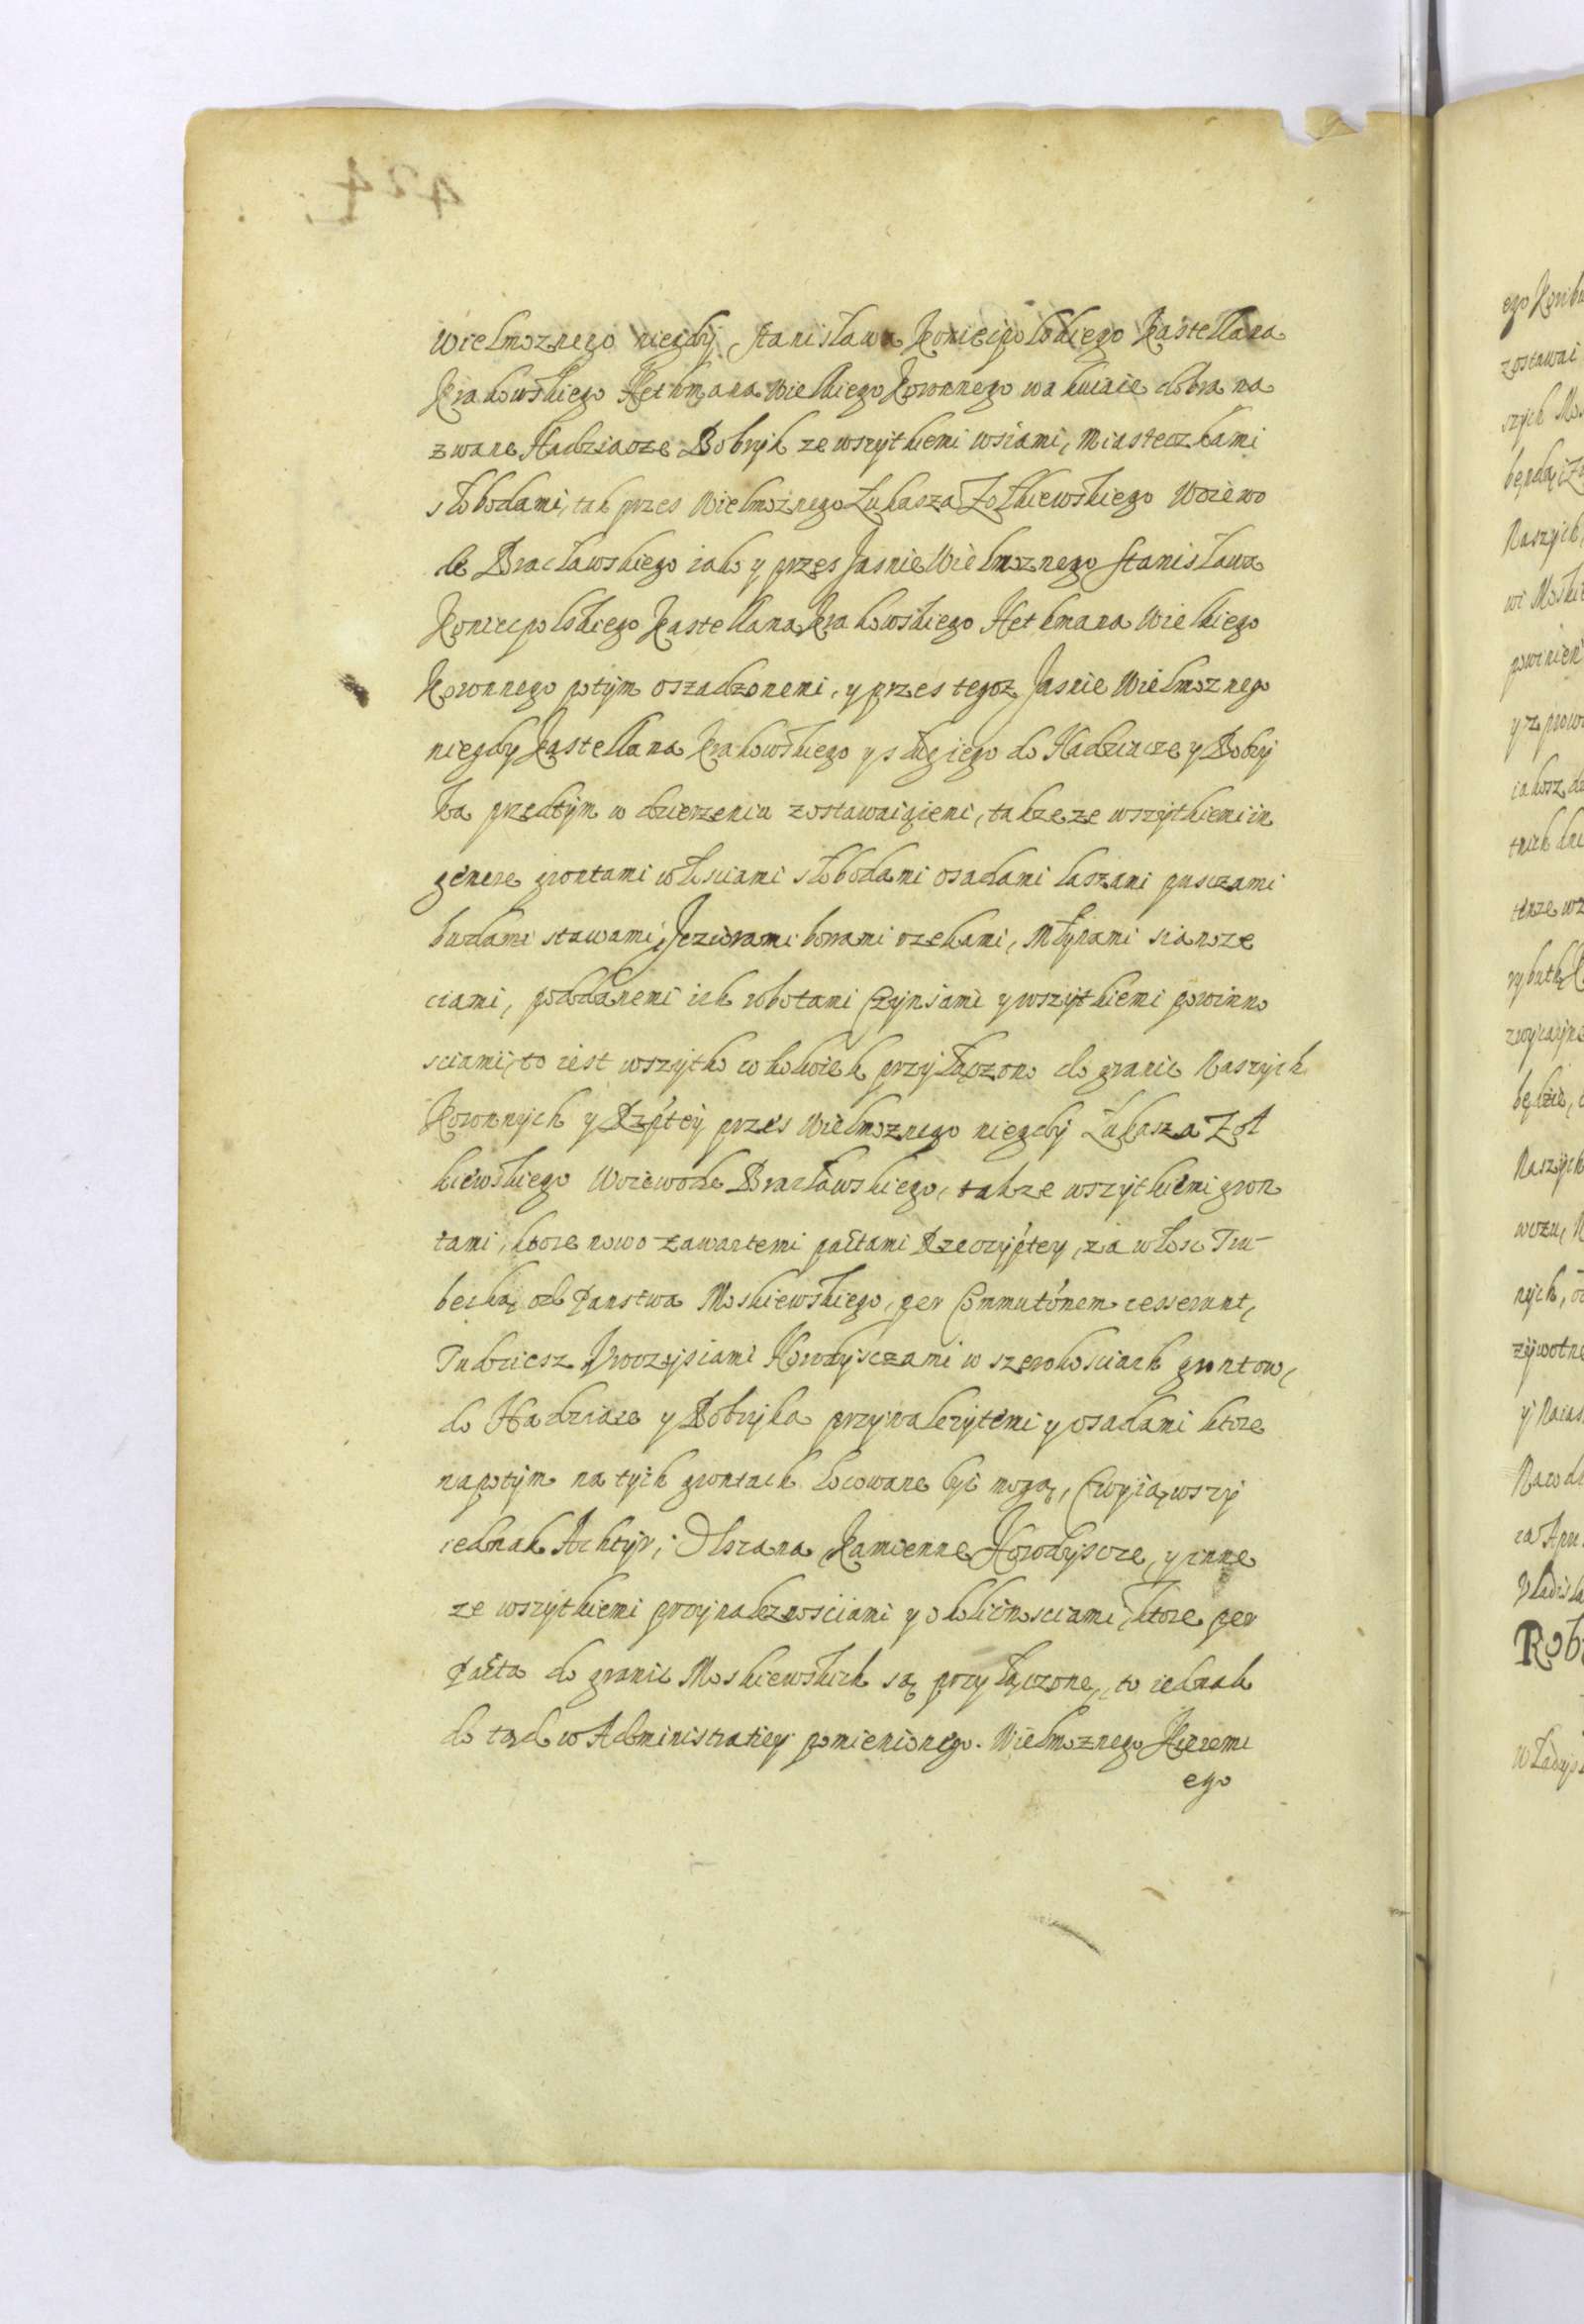 Wielmoznego niegdy Stanisława Koniecpolskiego Kastellana
Krakowskiego Hethmana Wielkiego Koronnego wakuiące dobra na
zwane Hadziacze Dobryk ze wszytkiemi wsiami, Miasteczkami
słobodami, tak przes Wielmoznego Łukasza Zołkiewskiego Woiewo
de Bracławskiego iako y przes Jasnie Wielmoznego Stanisława
Koniecpolskiego Kastellana Krakowskiego Hethmana Wielkiego
Koronnego potym oszadzonemi, y przes tegoz Jasnie Wielmoznego
niegdy Kastellana Krakowskiego y sług iego do Hadziacze y Dobry
ka przedtym w dzierzeniu zostawaiącemi, takze ze wszytkiemi in
genere grontami włosciami słobodami osadami laszami puszczami
budami stawami, Jeziorami borami rzekami, Młynami sianoze
ciami, poddanemi ich robotami Czynszami y wszytkiemi powinno
sciami, to iest wszytko cokolwiek przyłączono do granic Naszych
Koronnych y Rzptey przes Wielmoznego niegdy Łukasza Zoł
kiewskiego Woiewode Bracławskiego, takze wszytkiemi gron
tami, ktore nowo zawartemi paktami Rzeczyptey, za włosc Tru-
becką od Panstwa Moskiewskiego, per Commutónem cesserunt,
Tudziesz Uroczysciami Horodyszczami w szerokosciach grontow,
do Hadziacze y Dobryka przynalezytemi y osadami ktore
napotym na tych grontach locowane byc mogą, Cwyiąwszy
iednak Achtyr, Olszana Kamienne Horodyscze, y inne
ze wszytkiemi przynaleznosciami y okolicznosciami, ktore per
Pacta do granic Moskiewskich są przyłączone, to iednak
do tąd w Administratiey pomienionego. Wielmoznego Hieremi
ego